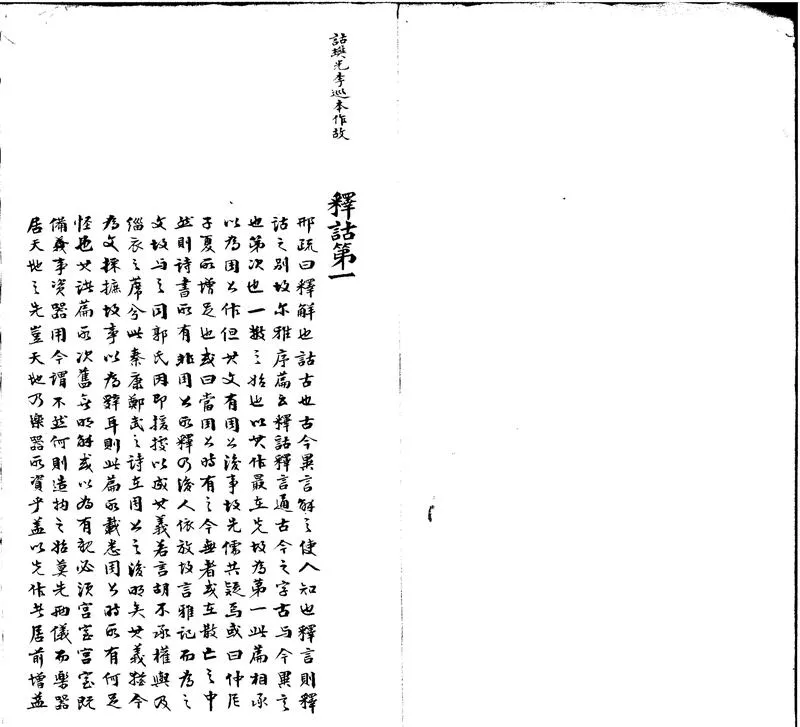 詁樊光李巡本作故
釋詁第一
邢疏曰釋解也詁古也古今異言解之使人知也釋言則釋
詁之別故尔雅序篇云釋詁釋言通古今之字古与今異言
也第次也一數之始也以其作最在先故為第一此篇相承
以為周公作但其文有周公後事故先儒共疑焉或曰仲尼
子夏所增足也或曰當周公時有之今無者或在散亡之中
然則詩書所有非周公所釋乃後人依放故言雅記而為之
文故与之同郭氏因即援據以成其義若言胡不承權輿及
緇衣之蓆兮此秦康鄭武之詩在周公之後明矣其義猶今
為文採摭故事以為辭耳則此篇所載悉周公時所有何足
怪也其諸篇所次舊無明解或以為有親必須宮室宮室既
備義事資器用今謂不然何則造物之始莫先兩儀而樂器
居天地之先豈天地乃樂器所資乎蓋以先作者居前增益